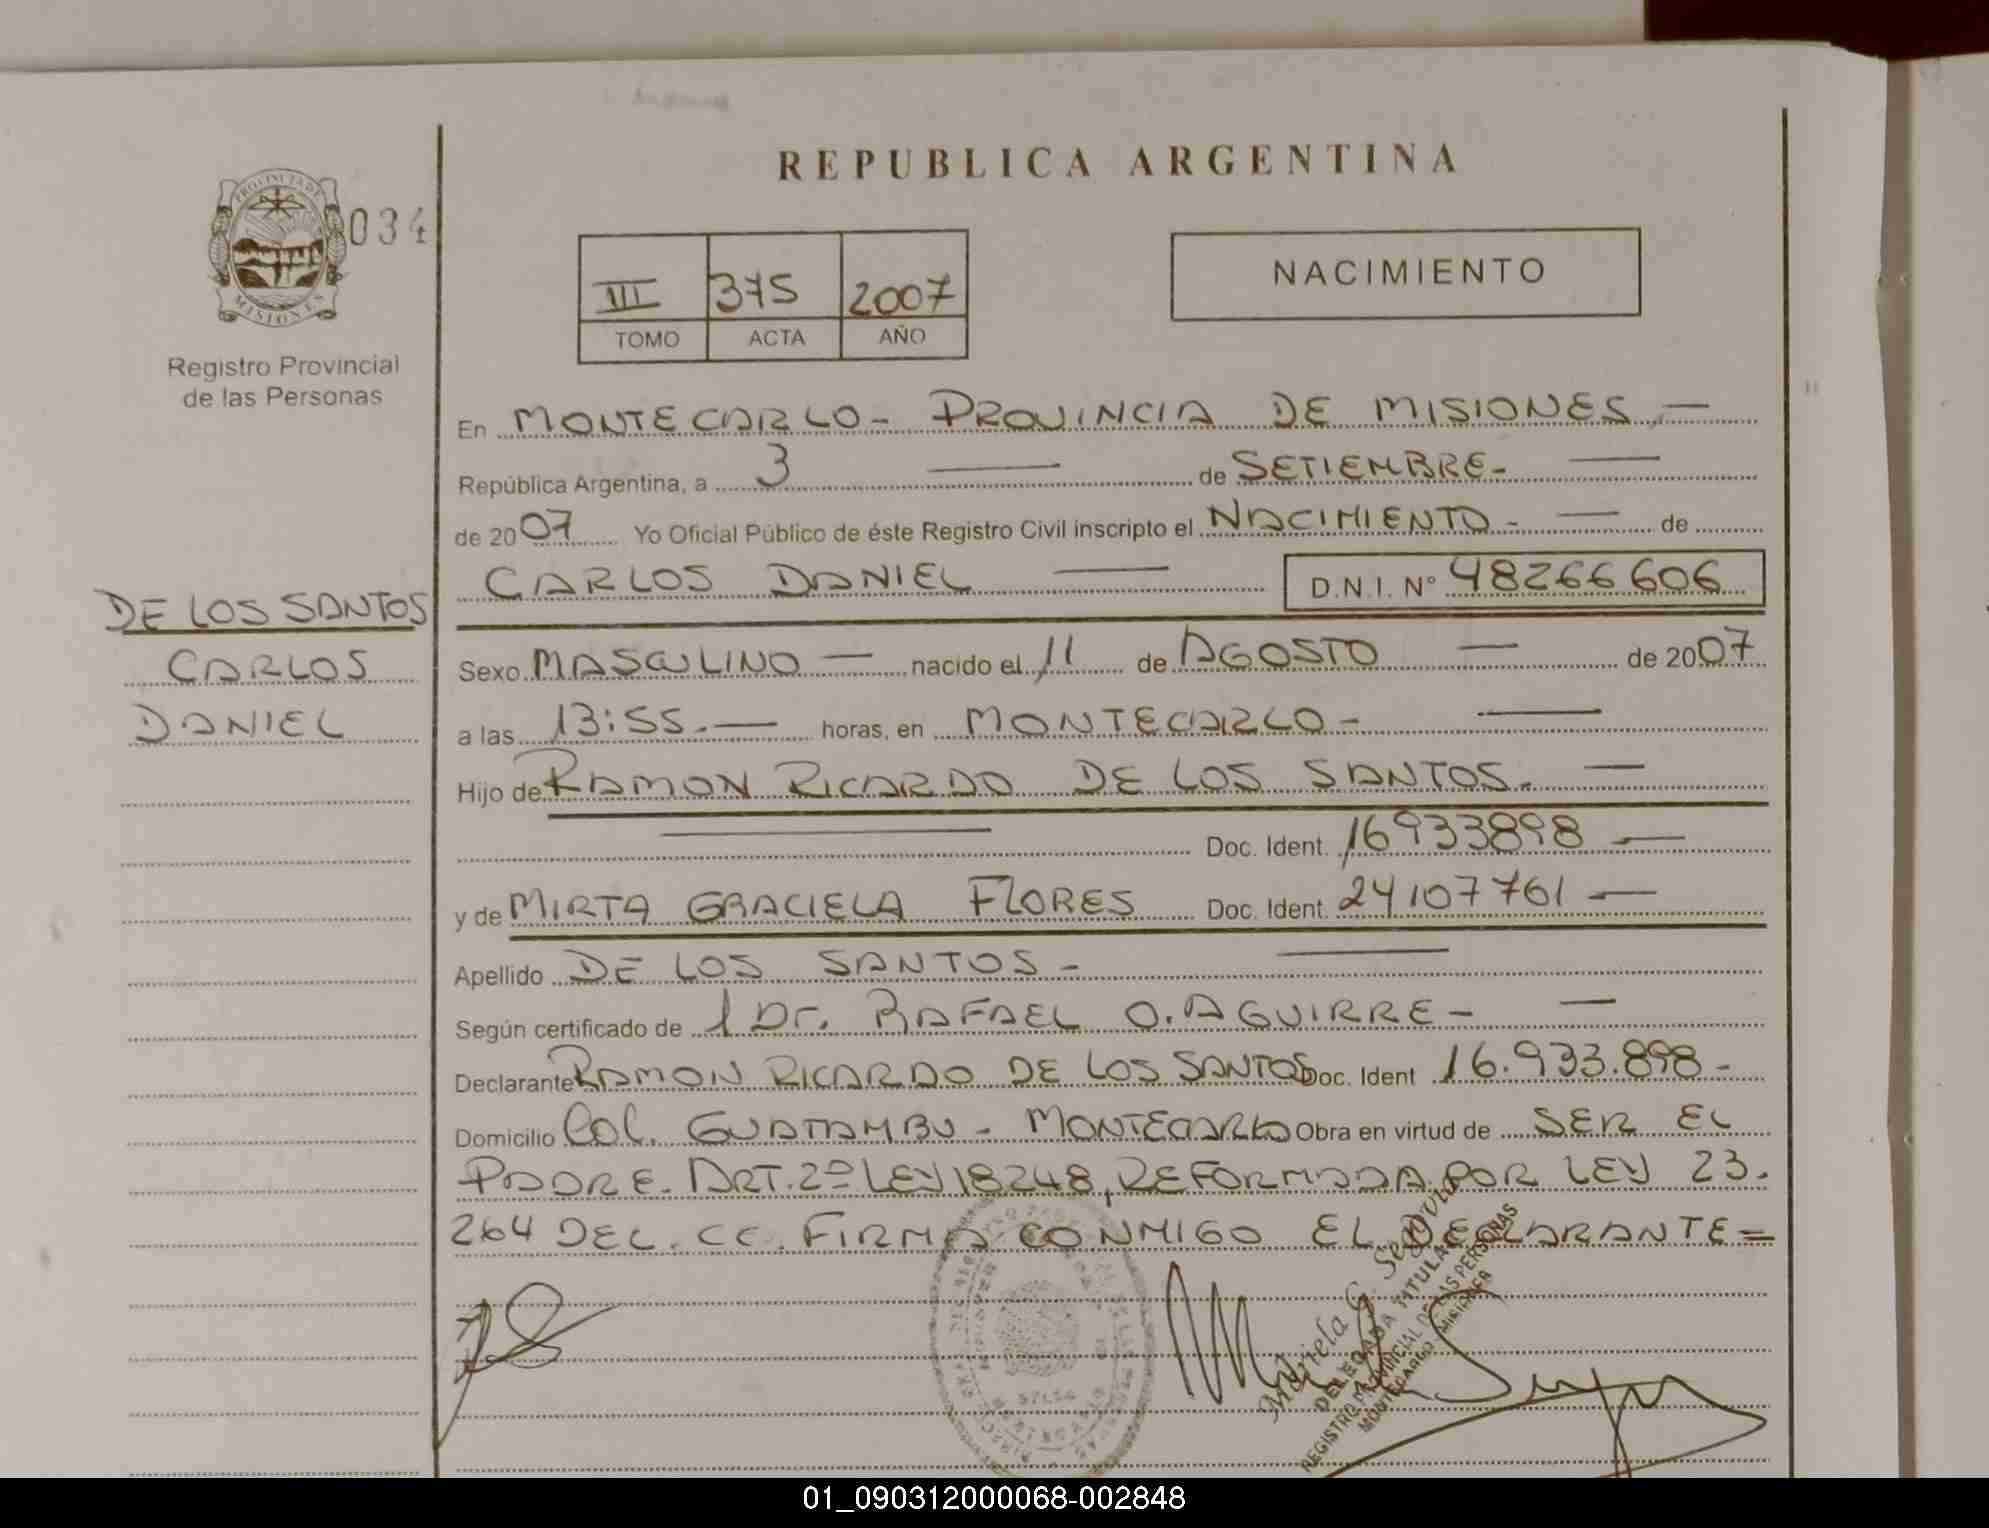 REPUBLICA ARGENTINA
PROVINCIA DE
MISIONES
034
III 375 2007
TOMO ACTA AÑO
NACIMIENTO
Registro Provincial
de las Personas
En MONTECARLO - PROVINCIA DE MISIONES, —
República Argentina, a 3 — de SETIEMBRE - —
de 2007 Yo Oficial Público de éste Registro Civil inscripto el NACIMIENTO - — de
CARLOS DANIEL — D.N.I. N° 48266606
DE LOS SANTOS
CARLOS
DANIEL
Sexo MASCULINO — nacido el 11 de AGOSTO — de 2007
a las 13:55. — horas, en MONTECARLO - —
Hijo de RAMON RICARDO DE LOS SANTOS. —
— Doc. Ident. 16933898 —
y de MIRTA GRACIELA FLORES Doc. Ident. 24107761 —
Apellido DE LOS SANTOS - —
Según certificado de 1 Dr. RAFAEL O. AGUIRRE - —
Declarante RAMON RICARDO DE LOS SANTOS Doc. Ident 16.933.898 -
Domicilio Col. GUATAMBU - MONTECARLO Obra en virtud de SER EL
PADRE. ART. 2º LEY 18248, REFORMADA POR LEY 23.
264 DEL. CC. FIRMA CONMIGO EL DECLARANTE =
Mariela G. Segovia
DELEGADA TITULAR
REGISTRO PROVINCIAL DE LAS PERSONAS
MONTECARLO MISIONES
01_090312000068-002848